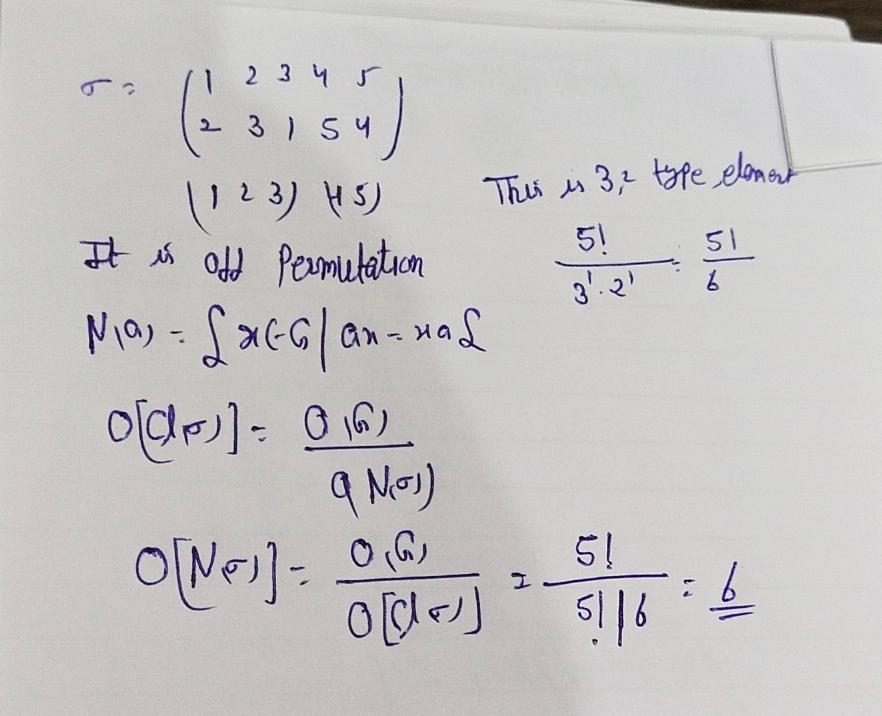 σ = ( 1 2 3 4 5
2 3 1 5 4 )
(1 2 3) (4 5)
This is 3,2 type element
It is odd Permutation
5! / 3¹·2¹ = 5! / 6
N(a) = { x ∈ G | ax = xa }
O[Cl(σ)] = O(G) / O(N(σ))
O[N(σ)] = O(G) / O[Cl(σ)] = 5! / 5!/6 = 6